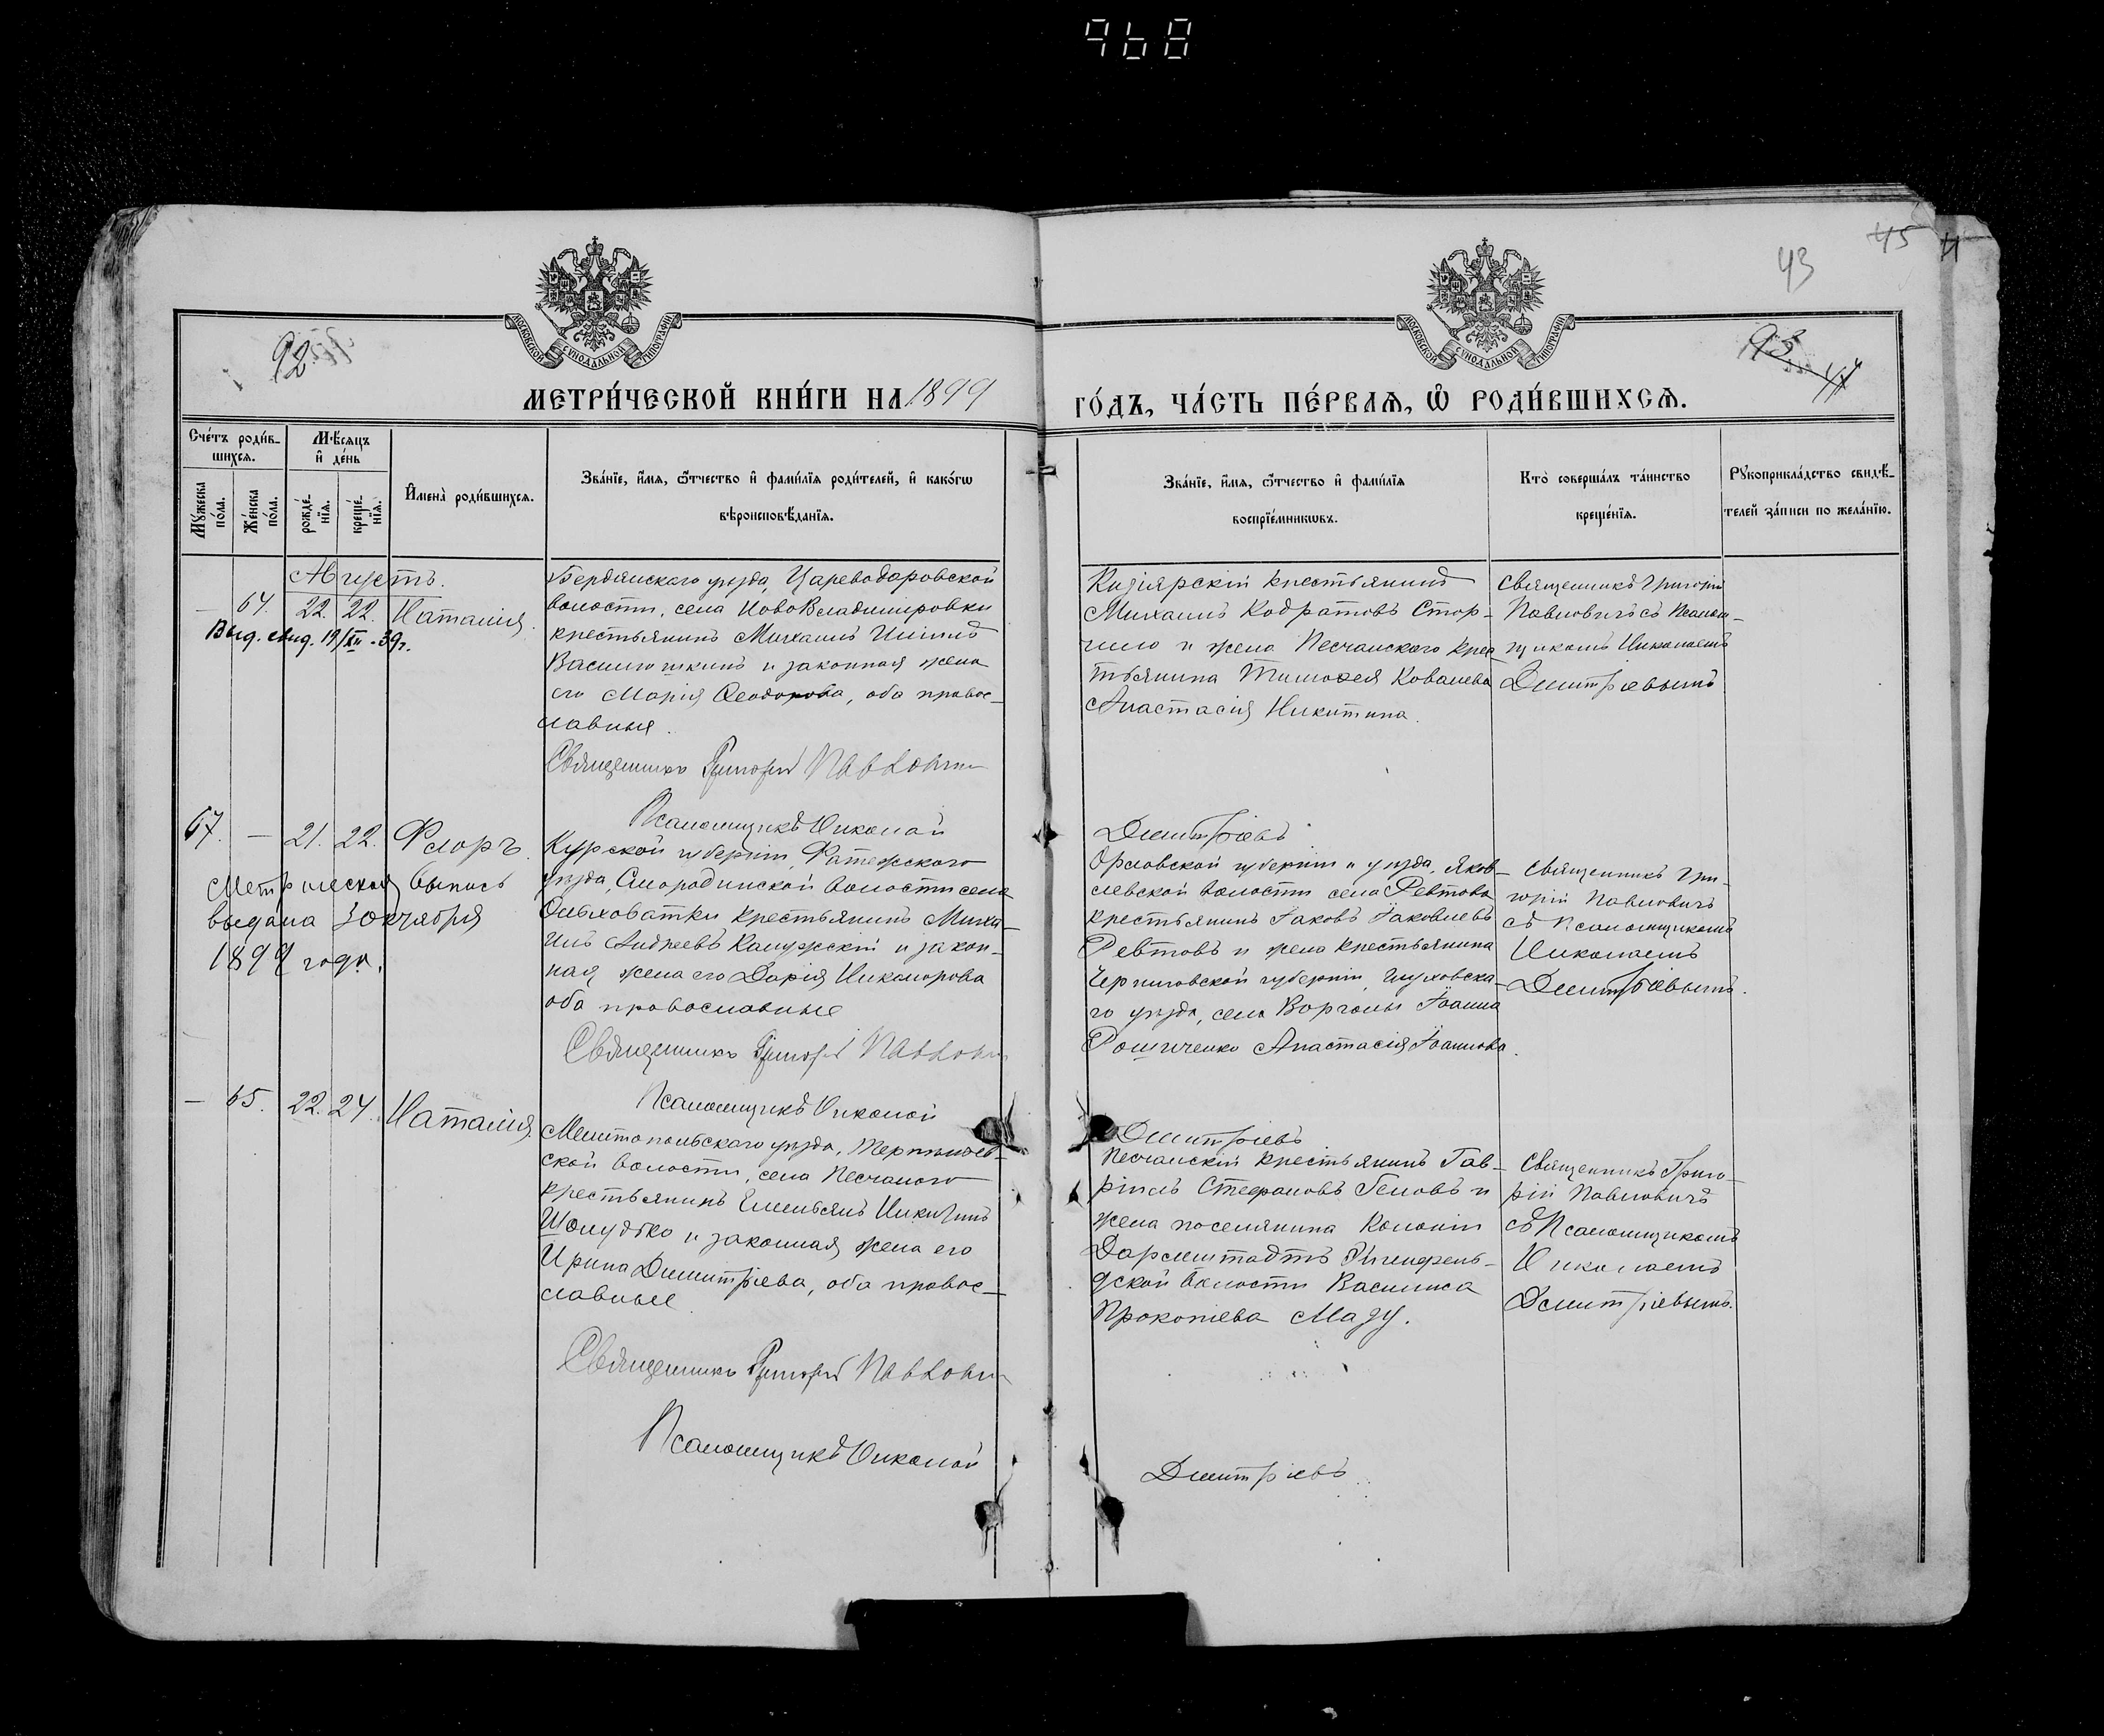 968
45
43
92
93
44
МОСКОВСКОЙ СУНОДАЛЬНОЙ ТИПОГРАФІИ
МОСКОВСКОЙ СУНОДАЛЬНОЙ ТИПОГРАФІИ
МЕТРИ́ЧЕСКОЙ КНИ́ГИ НА 1899
ГО́ДЪ, ЧА́СТЬ ПЕ́РВАѦ, Ѡ РОДИ́ВШИХСѦ.
Счетъ роди́в-
шихсѧ.
Мѣ́сѧцъ
и҆ де́нь
Му́жеска
по́ла.
Же́нска
по́ла.
рожде́-
нїѧ.
креще́-
нїѧ.
И҆мена̀ роди́вшихсѧ.
Зва́нїе, и҆́мѧ, ѻ҆́тчество и҆ фами́лїѧ роди́телей, и҆ како́гѡ
вѣроисповѣ́данїѧ.
Зва́нїе, и҆́мѧ, ѻ҆́тчество и҆ фами́лїѧ
воспрїе́мникѡвъ.
Кто̀ соверша́лъ та́инство
креще́нїѧ.
Рꙋкоприкла́дство свидѣ́-
телей за́писи по жела́нїю.
Августъ.
— 64. 22. 22. Наталія.
Выд. свид. 19/XII-39г.
Бердянскаго уѣзда, Цареводаровской
волости, села НовоВладимировки
крестьянинъ Михаилъ Иліинъ
Василюшкинъ и законная жена
его Марія Ѳеодорова, оба право-
славныя.
Священникъ Григорій Павловичъ
Псаломщикъ Николай
Дмитріевъ
Кизіярскій крестьянинъ
Михаилъ Кодратовъ Стор-
и жена Песчанскаго крес-
тьянина Тимоѳея Ковалева
Анастасія Никитина.
Священникъ Григорій
Павловичъ съ Псалом-
щикомъ Николаемъ
Дмитріевымъ
67. — 21. 22. Флоръ.
Метрическая выпись
выдана 3 октября
1899 года.
Курской губерніи, Фатежскаго
уѣзда, Смородинской волости села
Ольховатки крестьянинъ Миха-
илъ Андреевъ Калужскій и закон-
ная жена его Дарія Никанорова
оба православные
Священникъ Григорій Павловичъ
Псаломщикъ Николай
Дмитріевъ
Орловской губерніи и уѣзда, Яков-
левской волости села Ревтова
крестьянинъ Іаковъ Іаковлевъ
Ревтовъ и жена крестьянина
Черниговской губерніи, Глуховска-
го уѣзда, села Ворголы Іоанна
Рошиченко Анастасія Іоаннова.
Священникъ Гри-
горій Павловичъ
съ Псаломщикомъ
Николаемъ
Дмитріевымъ.
— 65. 22. 24. Наталія.
Мелитопольскаго уѣзда, Терпеніев-
ской волости, села Песчаного
крестьянинъ Емельянъ Никитинъ
Шолудько и законная жена его
Ирина Димитріева, оба право-
славные
Священникъ Григорій Павловичъ
Псаломщикъ Николай
Дмитріевъ
Песчанскій крестьянинъ Гав-
ріилъ Стефановъ Геновъ и
жена поселянина Колоніи
Дармштадтъ Эйгенфель-
дской волости Василиса
Прокопіева Мазу.
Священникъ Григо-
рій Павловичъ
съ Псаломщикомъ
Николаемъ
Дмитріевымъ.